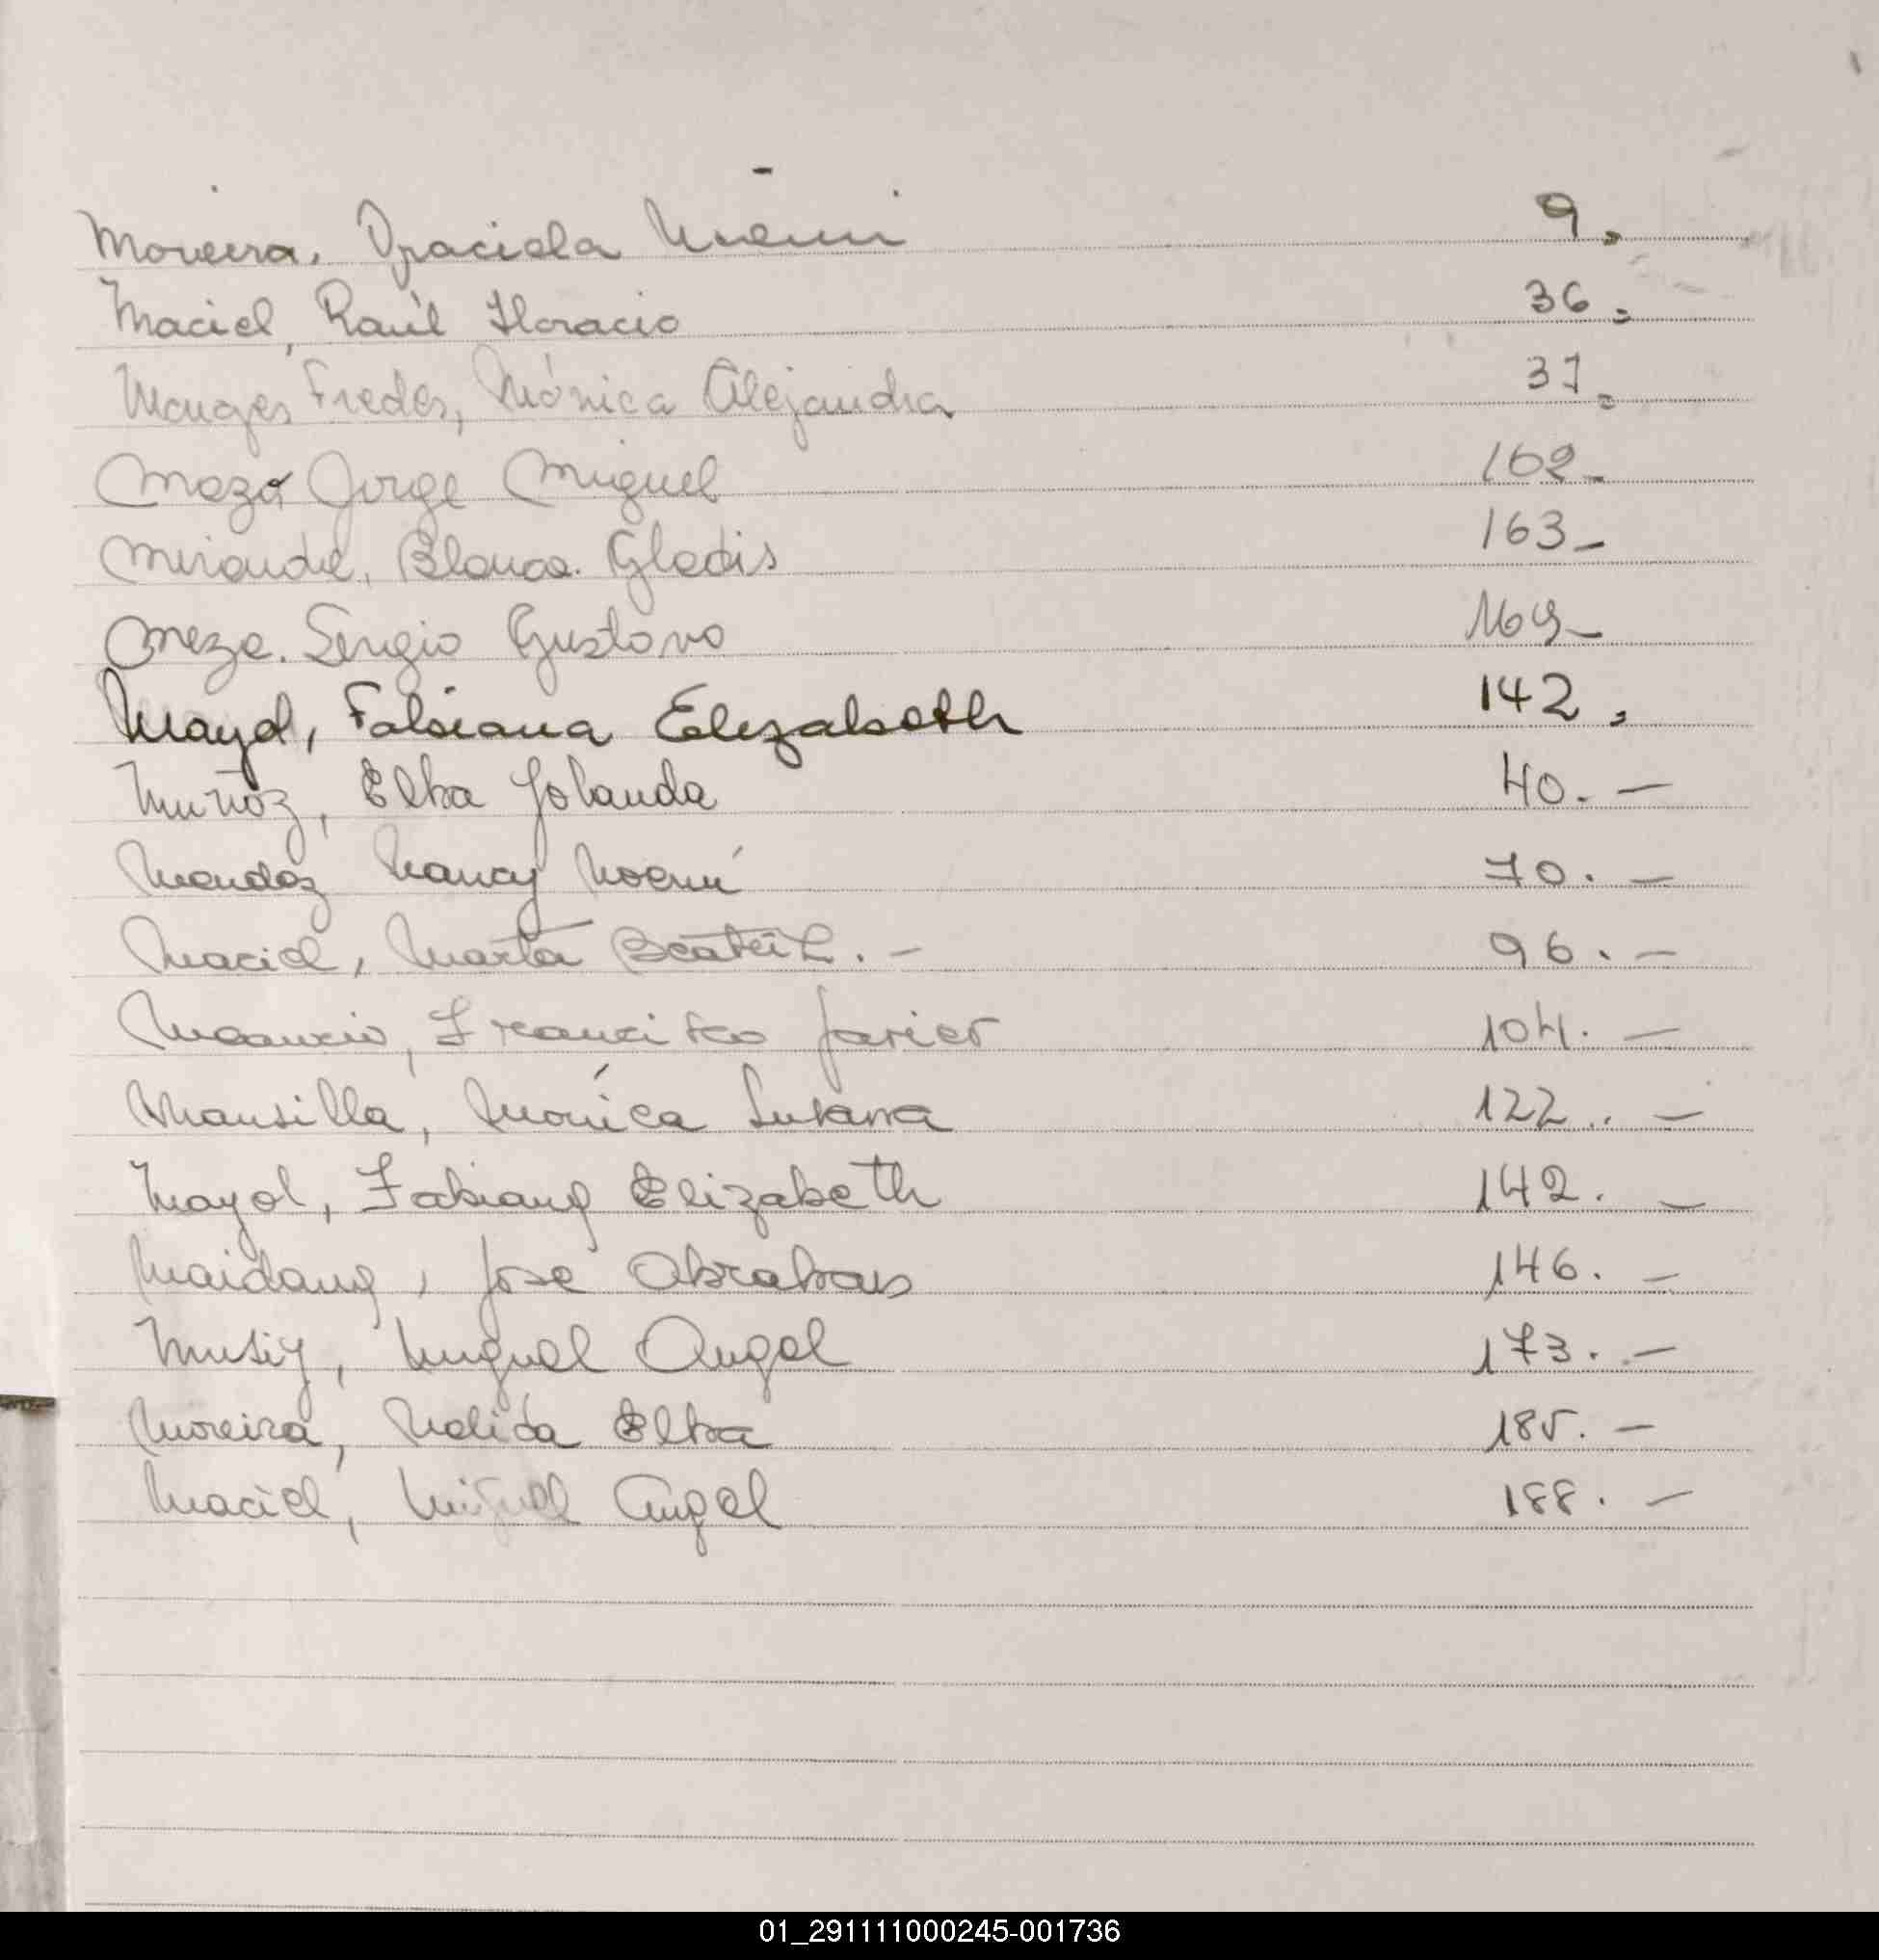 Moreira, Graciela Noemi 9.
Maciel, Raúl Horacio 36.
Monges Fredes, Mónica Alejandra 37.
Meza, Jorge Miguel 162-
Miranda, Blanca Gladis 163-
Meza. Sergio Gustavo 169-
Mayol, Fabiana Elizabeth 142.
Muñoz, Elba Yolanda 40.-
Mendoz Nancy Noemí 70.-
Maciel, Marta Beatriz.- 96.-
Francisco Javier 104.-
Mansilla, Mónica Susana 122..-
Mayol, Fabiana Elizabeth 142.-
Maidana, Jose Abraham 146.-
Miguel Angel 173.-
Moreira, Nelida Elba 185.-
Maciel, Miguel Angel 188.-
01_291111000245-001736